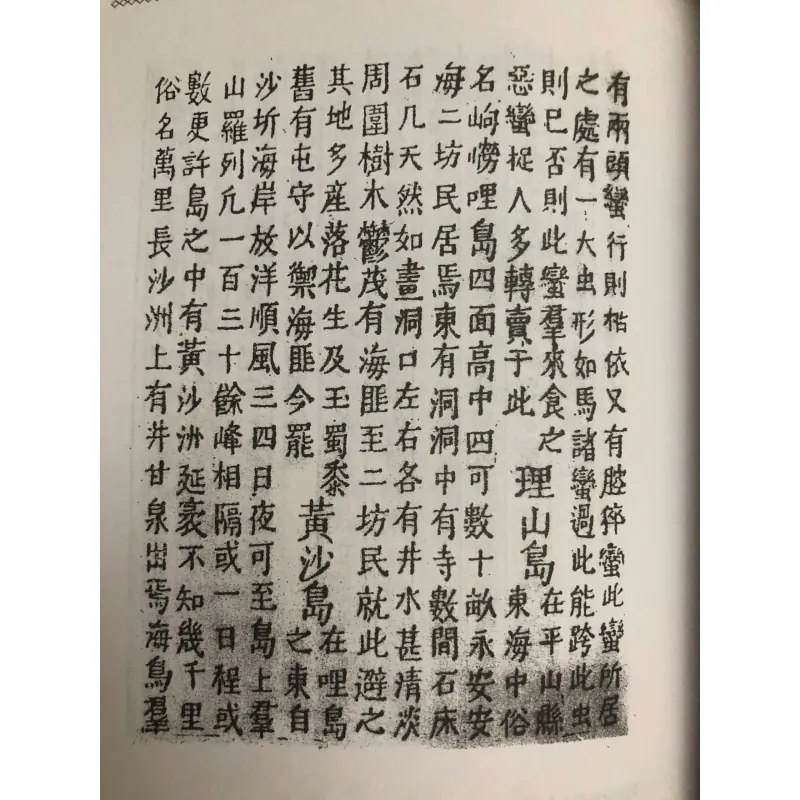 有兩頭蠻行則枯依又有腔猝蠻此蠻所居
之處有一大虫形如馬諸蠻過此能跨此虫
則已否則此蠻羣來食之 理山島 在平山縣
惡蠻捉人多轉賣于此 東海中俗
名岣嶗哩島四面高中凹可數十畝永安安
海二坊民居焉東有洞洞中有寺數間石床
石几天然如畫洞口左右各有井水甚清淡
周圍樹木鬱茂有海匪至二坊民就此避之
其地多産落花生及玉蜀黍 黃沙島 在哩島
舊有屯守以禦海匪今罷 之東自
沙圻海岸放洋順風三四日夜可至島上羣
山羅列凢一百三十餘峰相隔或一日程或
數更許島之中有黃沙洲延袤不知幾千里
俗名萬里長沙洲上有井甘泉出焉海鳥羣